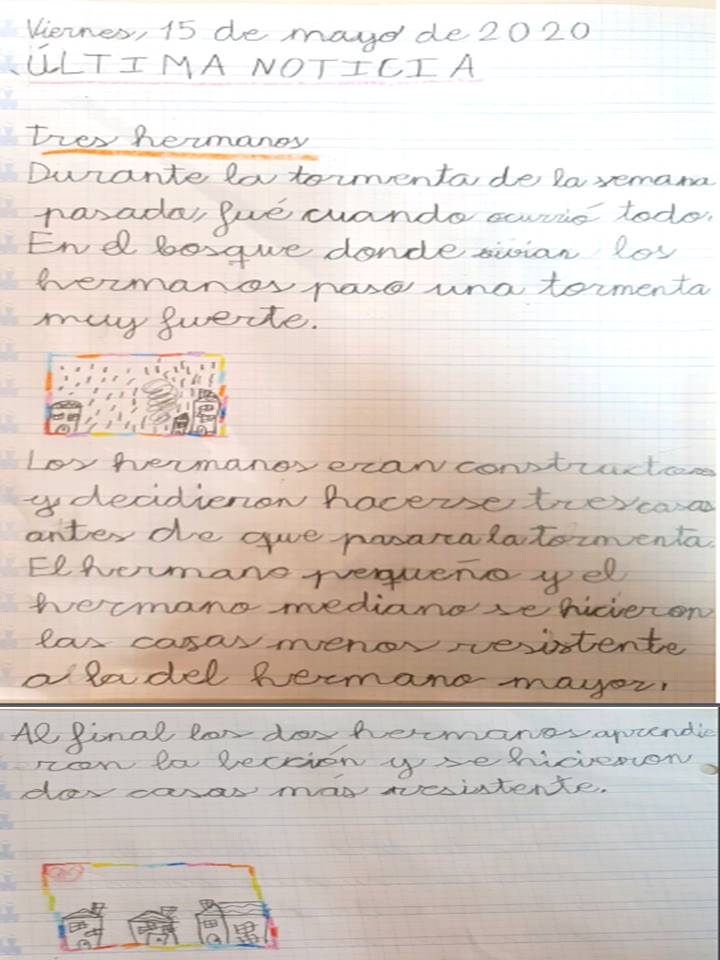 Viernes, 15 de mayo de 2020
ÚLTIMA NOTICIA
Tres hermanos
Durante la tormenta de la semana
pasada, fué cuando ocurrió todo.
En el bosque donde vivian los
hermanos paso una tormenta
muy fuerte.
Los hermanos eran constructores
y decidieron hacerse tres casas
antes de que pasara la tormenta.
El hermano pequeño y el
hermano mediano se hicieron
las casas menos resistente
a la del hermano mayor.
Al final los dos hermanos aprendie
ron la lección y se hicieron
dos casas más resistente.